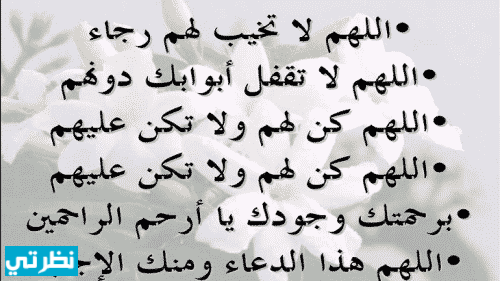 •اللهم لا تخيب لهم رجاء
•اللهم لا تقفل أبوابك دونهم
•اللهم كن لهم ولا تكن عليهم
•اللهم كن لهم ولا تكن عليهم
•برحمتك وجودك يا أرحم الراحمين
•اللهم هذا الدعاء ومنك
نظرتي